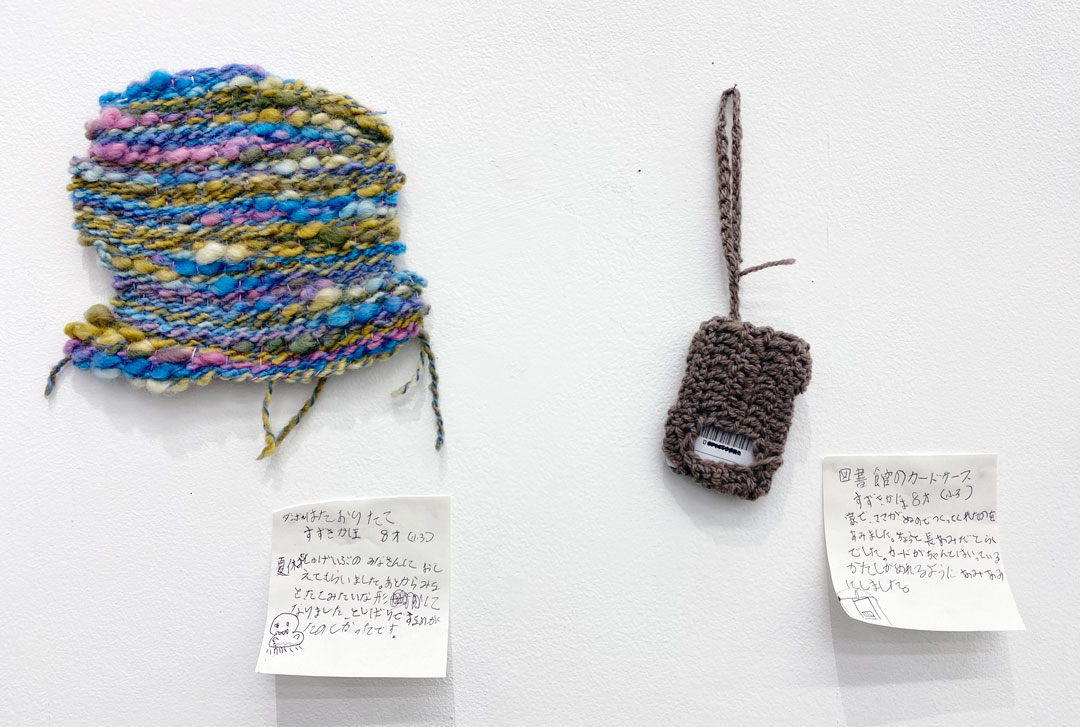 ダンボールはたおりたて
すずきかほ 8才(小3)
夏休み しゅげいぶの みなさんに おし
えてもらいました。あとからみる
とたてみたいな形
なりました。
たのしかったです。
図書館のカードケース
すずきかほ 8才(小3)
家で、ママが
あみました。 長あみだと らく
でした。カードがちゃんとはいっている
かたしかめれるように あみあみ
にしました。